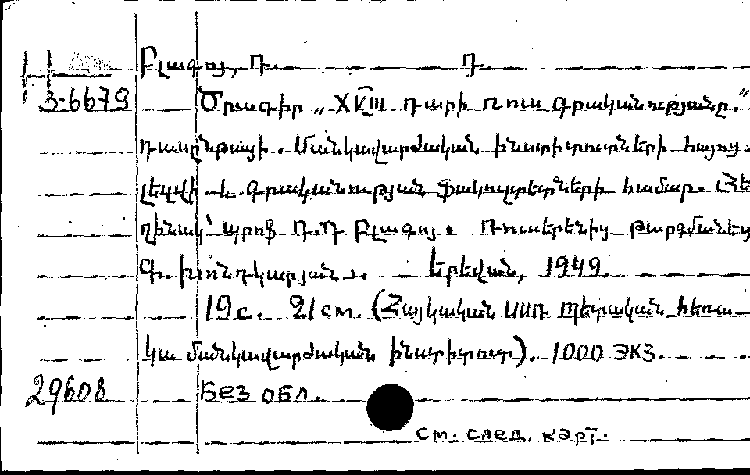 Բլագոյ, Դ. Դ.
3-6679 Ծրագիր „XVIII դարի ռուս գրականությանը”
դասընթացի. Մանկավարժական ինստիտուտների հայոց
լեզվի և գրականության ֆակուլտետների համար. Հե
ղինակ՝ պրոֆ Դ.Դ Բլագոյ. Ռուսերենից թարգմանեց
Գ. Խոնդկարյան. Երեվան, 1949.
19 с. 21 см. (Հայկական ՍՍՌ Պետական հեռա
կա մանկավարժական ինստիտուտ). 1000 экз.
29608 Без обл.
см. след. карт.